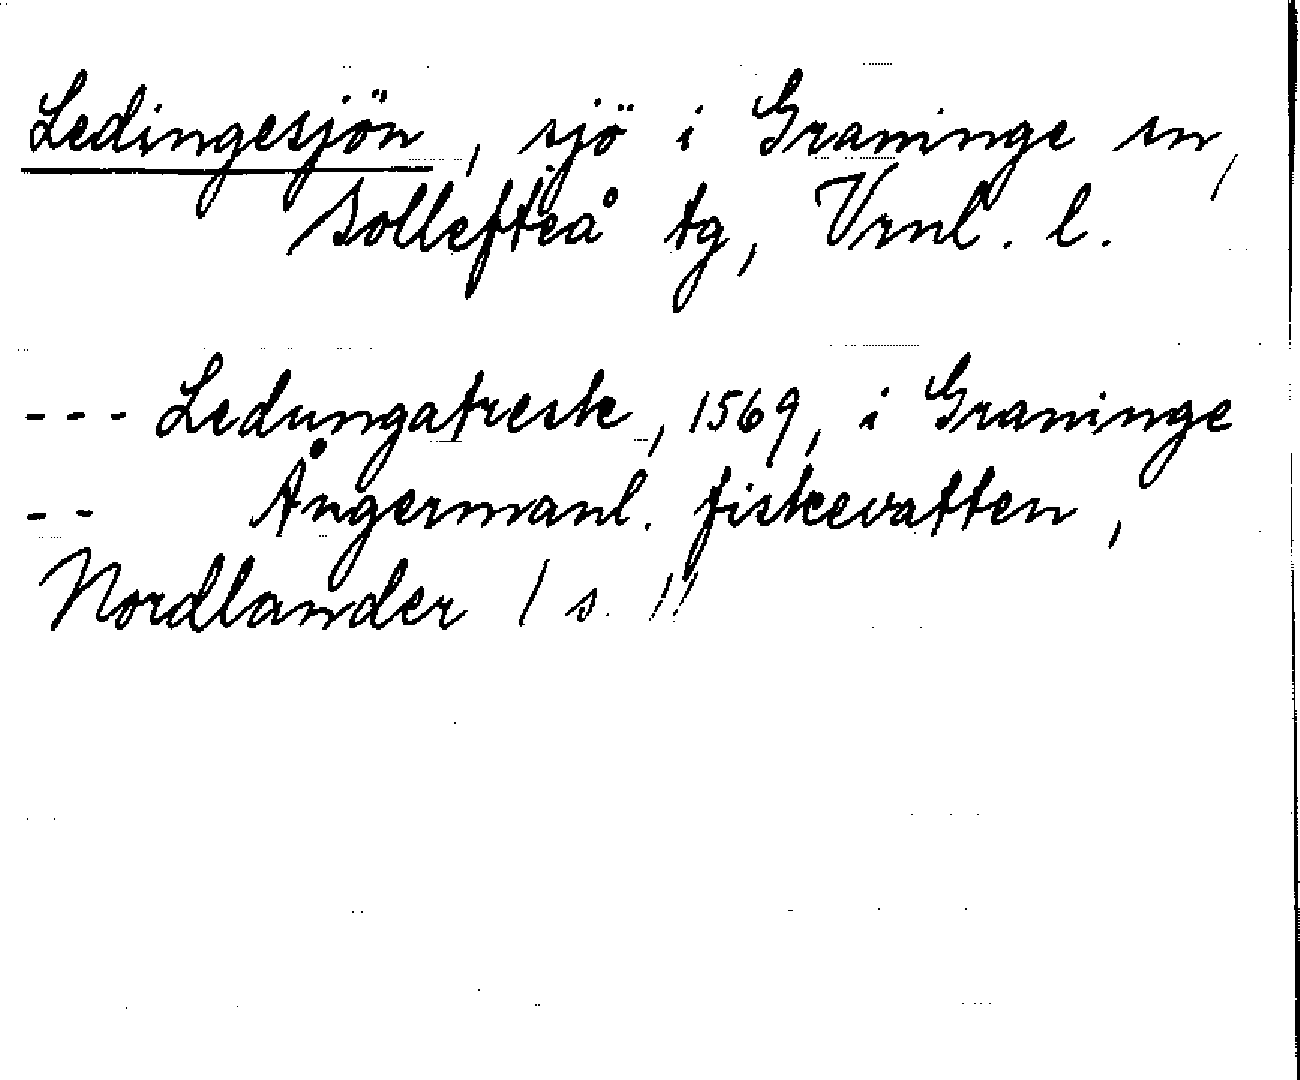 Ledingesjön, sjö i Graninge sn,
Sollefteå tg, Vrnl. l.
--- Ledungatresk, 1569, i Graninge
-- Ångermanl. fiskevatten,
Nordlander 1 s. 11